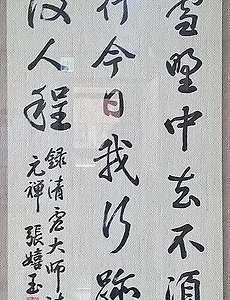 雪野中去不須
行今日我行跡
後人程
錄清虛大師詩
元禪 張嬉玉